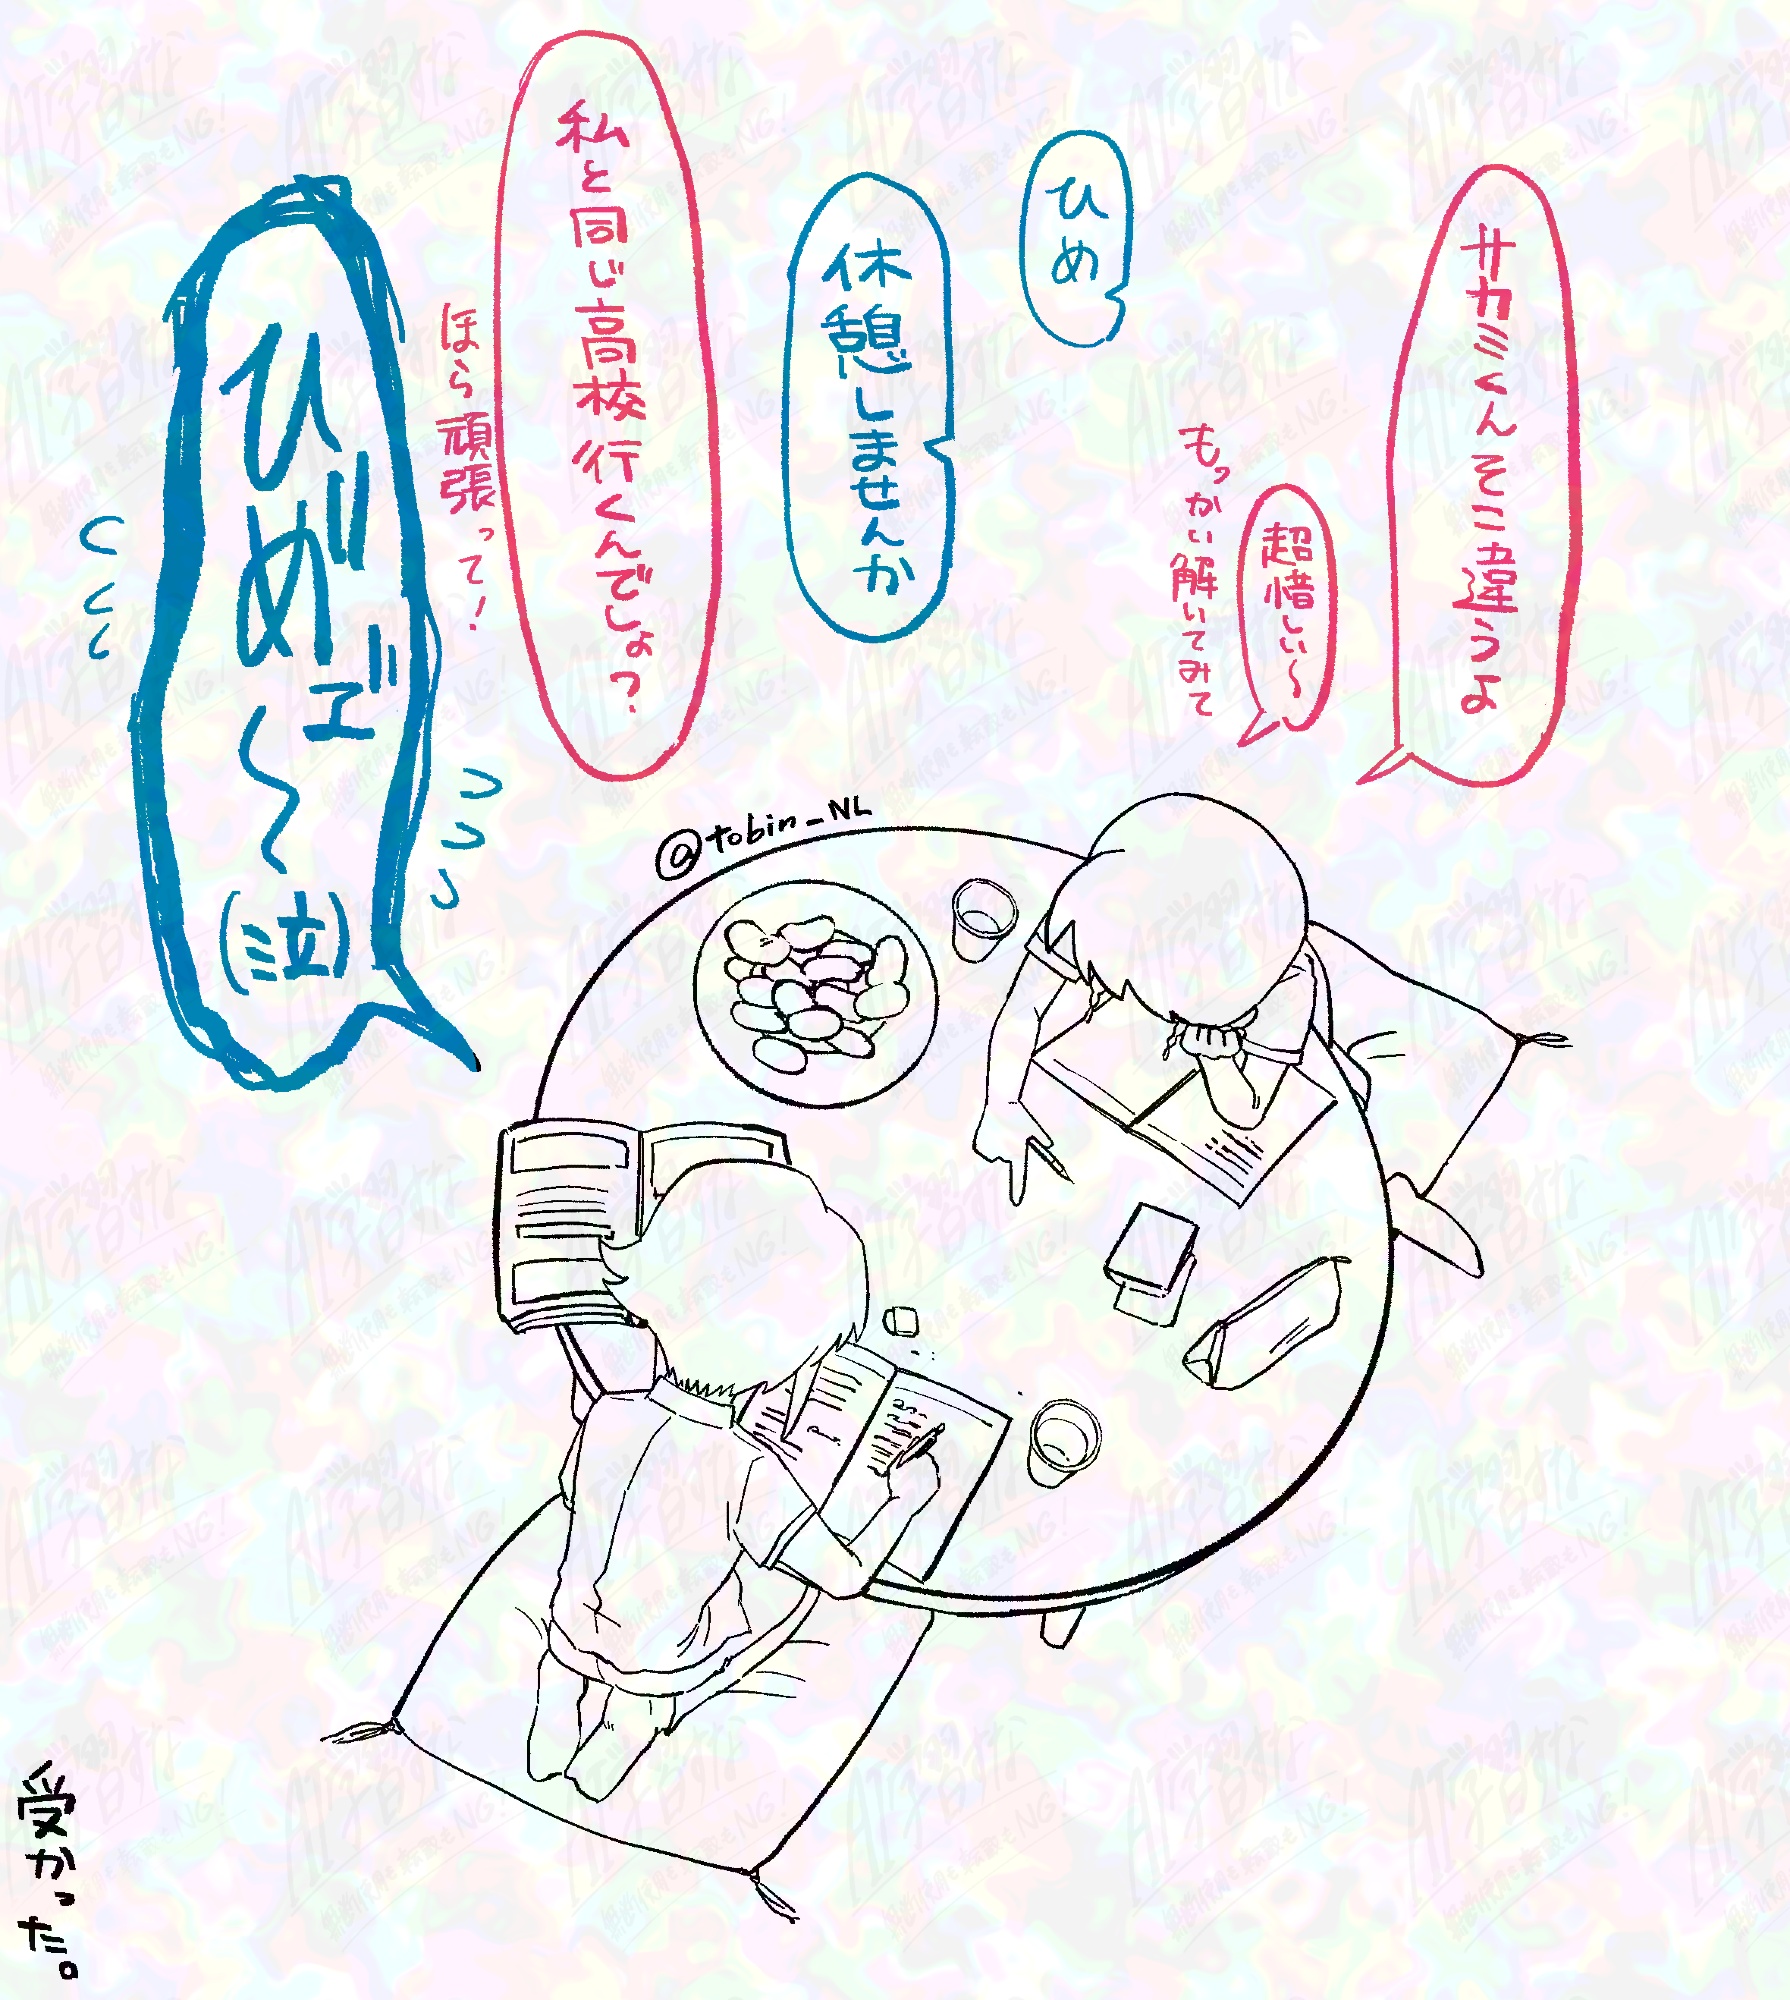 サカミくんそこ違うよ
超惜しい〜
もっかい解いてみて
ひめ
休憩しませんか
私と同じ高校行くんでしょ?
ほら頑張って!
ひめ゛エ゛〜(泣)
@tobin_NL
受かった。
AI学習禁止
無断使用も転載もNG!